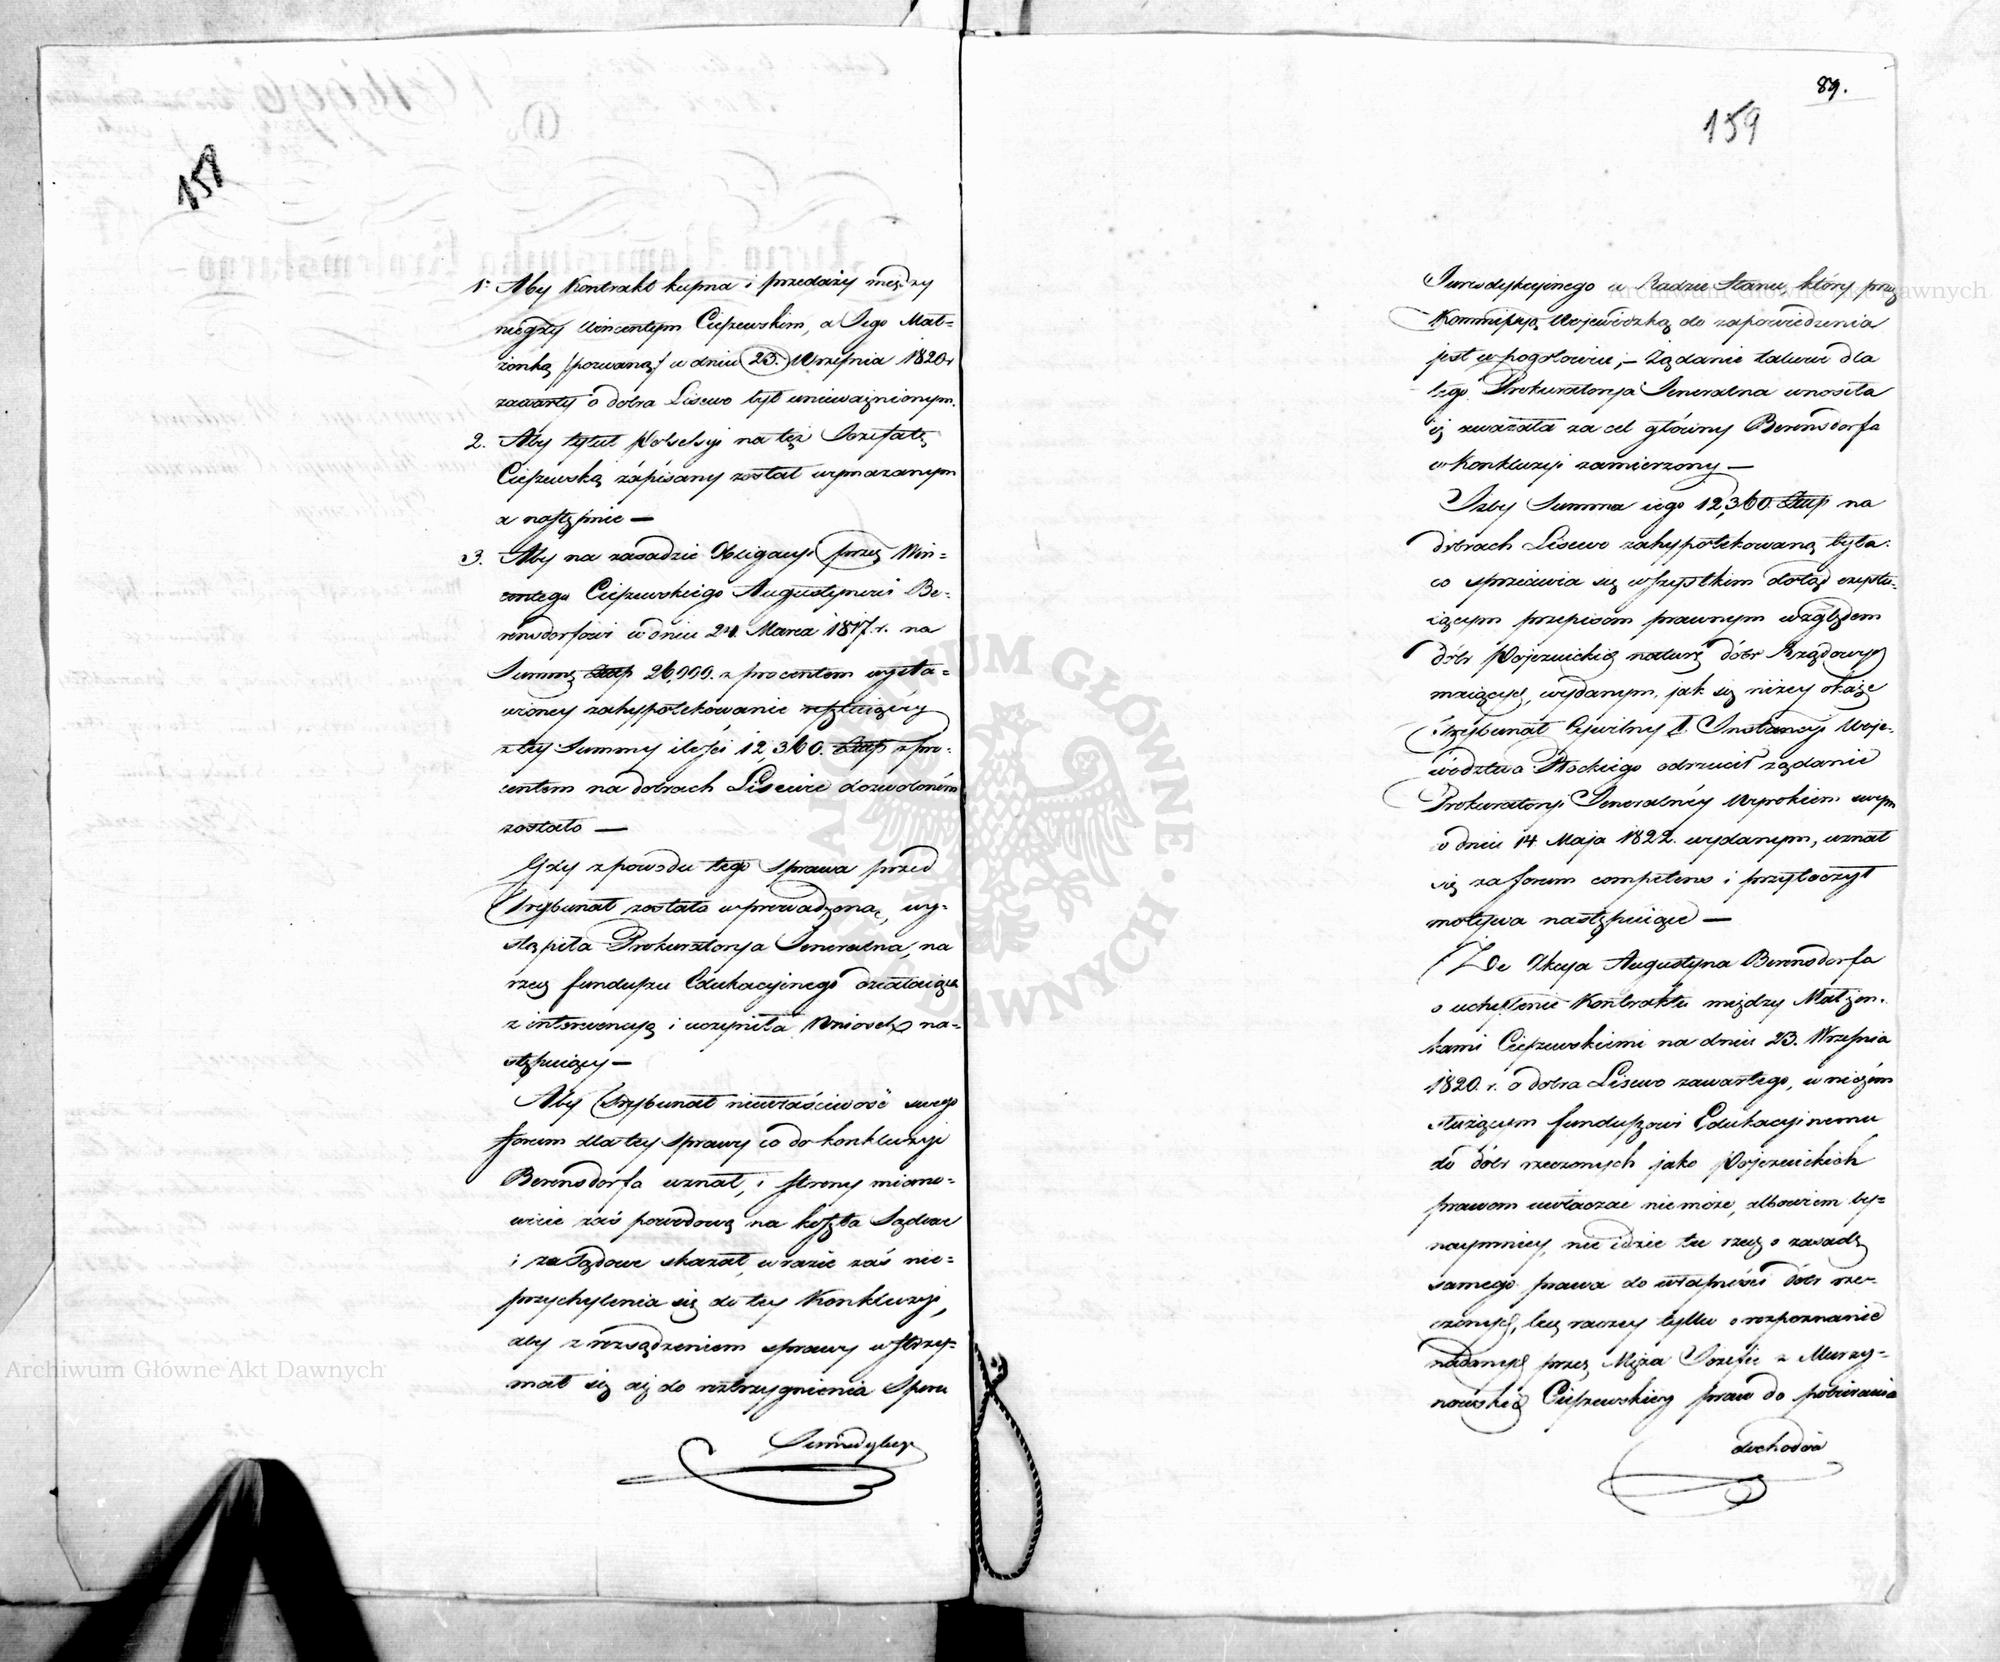 158
1º Aby Kontrakt kupna i przedaży między
niegdy Wincentym Ciepzewskim, a Jego Mał=
żonką /pozwaną/ w dniu 23. Września 1820 r
zawarty o dobra Lisewo był unieważnionym.
2. Aby tytuł Possessyi na tęż Jozefatę
Ciepzewską zápisany został wymazanym
a następnie —
3. Aby na zasadzie Obligacyi przez Win=
centego Ciepzewskiego Augustynowi Be=
rensdorfowi w dniu 24. Marca 1817. r. na
Summę 26,000. z procentem wysta=
wioney zahypotekowanie
z tey Summy ilości 12,360. z pro=
centem na dobrach Lisewie dozwolonem
zostało —
Gdy z powodu tego Sprawa przed
Trybunał została wprowadzoną, wy=
stąpiła Prokuratorya Jeneralna, na
rzecz funduszu Edukacyinego działaiąca
z interwencyą i uczyniła Wniosek na=
stępuiący —
Aby Trybunał niewłaściwość swego
forum dla tey Sprawy co do konkluzyi
Berensdorfa uznał, i strony miano=
wicie zaś powodową na koszta Sądowe
i zasądowe skazał, w razie zaś nie=
przychylenia się do tey Konkluzyi,
aby z rozsądzeniem sprawy wstrzy=
mał się aż do roztrzygnienia Sporu
Jurisdykcyi
89.
159
Jurisdykcyinego w Radzie Stanu, który przez
Kommissyą Wojewódzką do zapowiedzenia
jest w pogotowiu; — Żądanie takowe dla
tego Prokuratorya Jeneralna wnosiła
iż uważała za cel główny Berensdorfa
w Konkluzyi zamierzony —
Iżby Summa iego 12,360. na
dobrach Lisewo zahypotekowaną była:
co sprzeciwia się wszystkim dotąd exystu=
iącym przepisom prawnym względem
dóbr Pojezuickich naturę dóbr Rządowych
maiących, wydanym, jak się niżey okaże
Trybunał Cywilny I. Instancyi Woje=
wództwa Płockiego odrzucił żądanie
Prokuratoryi Jeneralnéy Wyrokiem swym
w dniu 14 Maja 1822. wydanym, uznał
się za forum competens i przytoczył
motywa następuiące —
Że Akcya Augustyna Berensdorfa
o uchylenie Kontraktu między Małżon=
kami Ciepzewskiemi na dniu 23. Września
1820. r. o dobra Lisewo zawartego, w niczem
służącym funduszowi Edukacyinemu
do dóbr rzeczonych jako Pojezuickich
prawom uwłaczać nie może, albowiem by=
naymniey, nie idzie tu rzecz o zasadę
samego prawa do własności dóbr rze=
czonych, lecz raczey tylko o rozpoznanie
nadanych przez Męża Jozefie z Murzy=
nowskich Ciepzewskiey praw do pobierania
dochodów